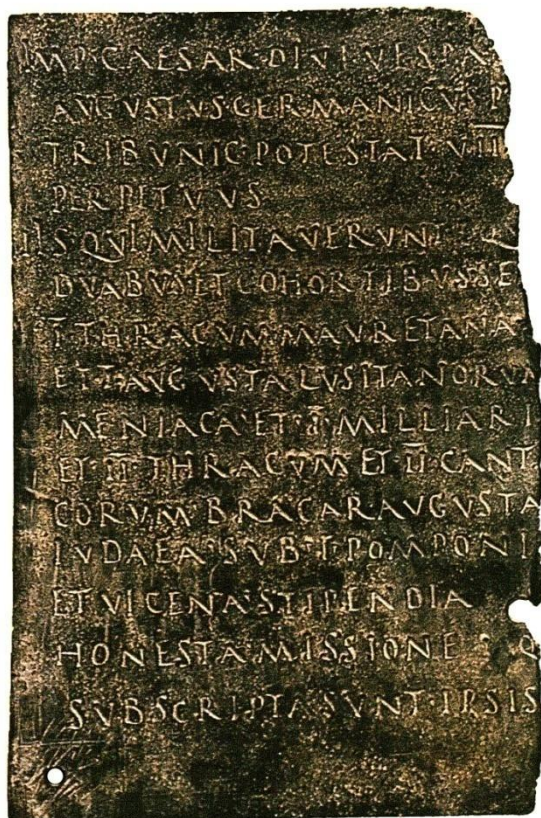 IMP·CAESAR·DIVI·VESPA
AVGVSTVS GERMANICVS P
TRIBVNIC·POTESTAT·VII
PERPETVVS
IIS QVI MILITAVERVNT EQ
DVABVS ET COHORTIBVS SE
I THRACVM MAVRETANA
ET I AVGVSTA LVSITANORVM
MENIACA ET I MILLIARI
ET II THRACVM ET II CANT
CORVM BRACARAVGVSTA
IVDAEA SVB T POMPONI
ET VICENA STIPENDIA
HONESTA MISSIONE Q
SVBSCRIPTA SVNT·IPSIS